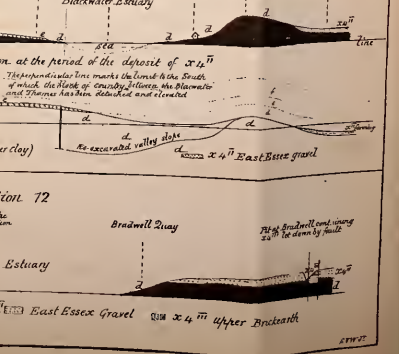 Blackwater Estuary
d
x4"
e
d
sea
d
d
line
n at the period of the deposit of x4"
The perpendicular line marks the limit to the South
of which the block of country between the Blacwater
and Thames has been detached and elevated
d
d
x4" forming
d
Re-excavated valley slope
er clay)
d
x4" East Essex gravel
tion 12
Bradwell Quay
Pit at Bradwell containing
x4" let down by fault
Estuary
x4"
d
d
East Essex Gravel
x4''' Upper Brickearth